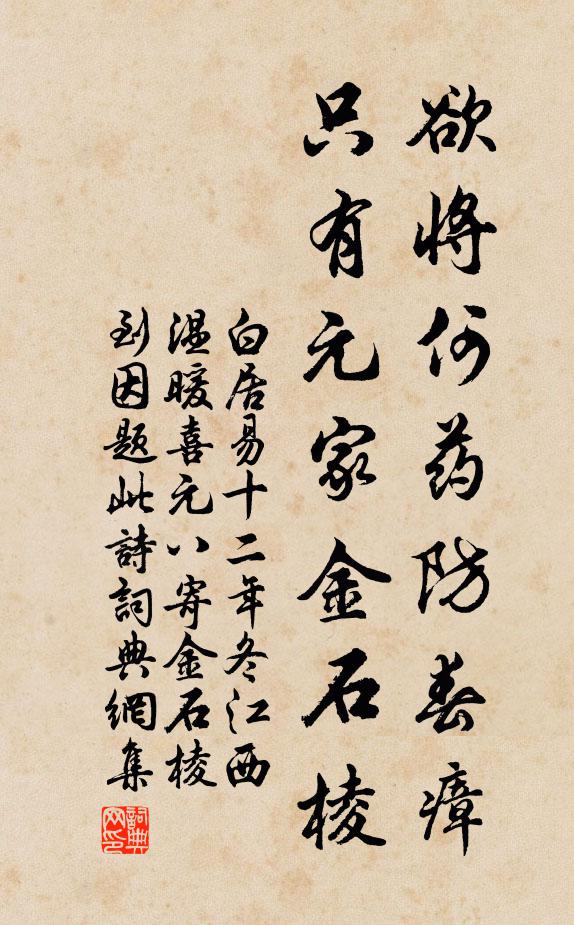 欲将何药防春瘴
只有元家金石棱
白居易十二年冬江西
温暖喜元八寄金石棱
到因题此詩詞典網集
詞典网印